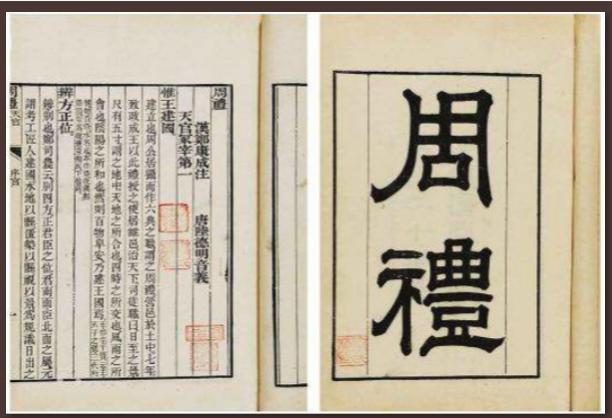 周禮
周禮
漢鄭康成注 唐陸德明音義
天官冢宰第一
惟王建國
建立也周公居攝而作六典之職謂之周禮營邑於土中七年
致政成王以此禮授之使居雒邑治天下司徒職曰日至之景
尺有五寸謂之地中天地之所合也四時之所交也風雨之所
會也陰陽之所和也然則百物阜安乃建王國焉
辨方正位
辨別也鄭司農云別四方正君臣之位君南面臣北面之屬元
謂考工匠人建國水地以縣置槷以縣眡以景爲規識日出之
周禮 天官 序官 一